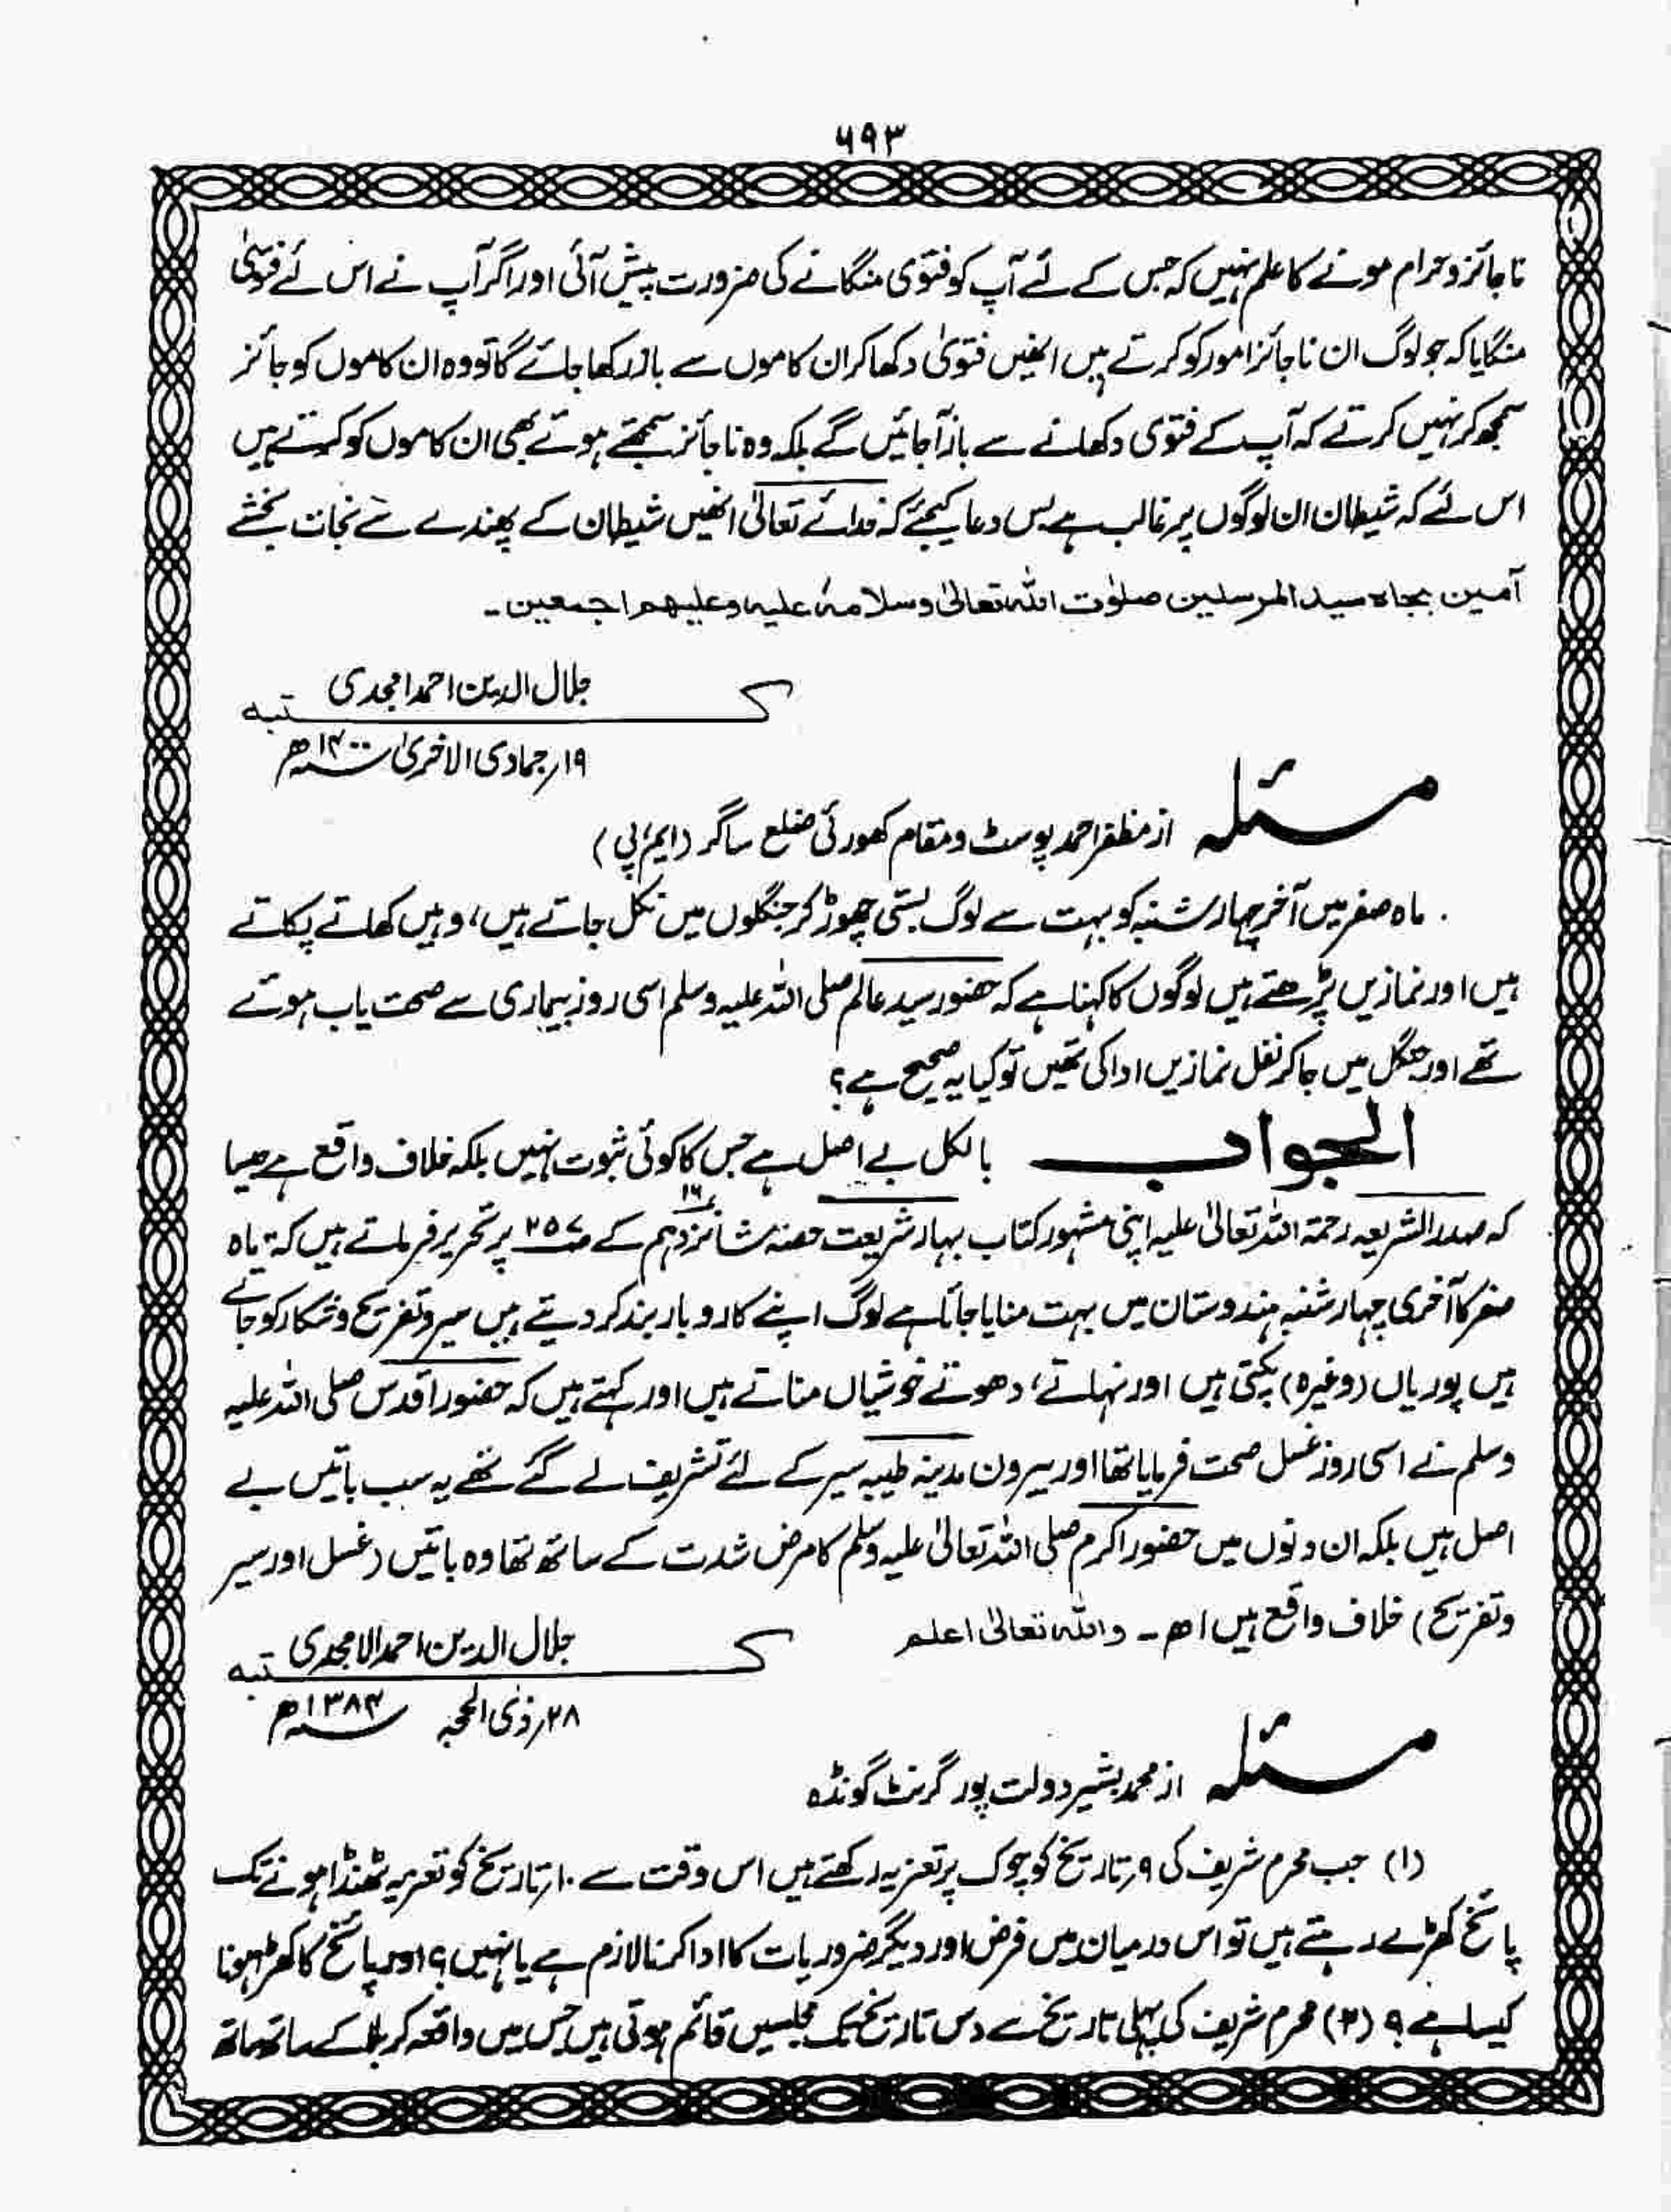 ۶۹۳
ناجائز و حرام ہونے کا علم نہیں کہ جس کے لئے آپ کو فتوی منگانے کی ضرورت پیش آئی اور اگر آپ نے اس لئے فتویٰ
منگایا کہ جو لوگ ان ناجائز امور کو کرتے ہیں انھیں فتویٰ دکھا کر ان کاموں سے باز رکھا جائے گا تو وہ ان کاموں کو جائز
سمجھ کر نہیں کرتے کہ آپ کے فتوی دکھلانے سے باز آ جائیں گے بلکہ وہ ناجائز سمجھتے ہوئے بھی ان کاموں کو کرتے ہیں
اس لئے کہ شیطان ان لوگوں پر غالب ہے بس دعا کیجئے کہ خدائے تعالیٰ انھیں شیطان کے پھندے سے نجات بخشے
آمین بجاہ سید المرسلین صلوٰت اللہ تعالیٰ وسلامہ علیہ وعلیہم اجمعین۔
جلال الدین احمد امجدی
کتبہ
۱۹؍ جمادی الاخریٰ ۱۴۰۰ھ
مسئلہ از مظفر احمد پوسٹ و مقام کھورئی ضلع ساگر (ایم پی)
ماہ صفر میں آخر چہار شنبہ کو بہت سے لوگ بستی چھوڑ کر جنگلوں میں نکل جاتے ہیں، وہیں کھاتے پکاتے
ہیں اور نمازیں پڑھتے ہیں لوگوں کا کہنا ہے کہ حضور سید عالم صلی اللہ علیہ وسلم اسی روز بیماری سے صحت یاب ہوئے
تھے اور جنگل میں جا کر نفل نمازیں ادا کی تھیں تو کیا یہ صحیح ہے؟
الجواب بالکل بے اصل ہے جس کا کوئی ثبوت نہیں بلکہ خلاف واقع ہے جیسا
کہ صدر الشریعہ رحمۃ اللہ تعالیٰ علیہ اپنی مشہور کتاب بہار شریعت حصہ شانزدہم ۱۶ کے ص ۲۵۷ پر تحریر فرماتے ہیں کہ یاہ
صفر کا آخری چہار شنبہ ہندوستان میں بہت منایا جاتا ہے لوگ اپنے کاروبار بند کر دیتے ہیں سیر و تفریح و شکار کو جاتے
ہیں پوریاں (وغیرہ) پکتی ہیں اور نہاتے، دھوتے خوشیاں مناتے ہیں اور کہتے ہیں کہ حضور اقدس صلی اللہ علیہ
وسلم نے اسی روز غسل صحت فرمایا تھا اور بیرون مدینہ طیبہ سیر کے لئے تشریف لے گئے تھے یہ سب باتیں بے
اصل ہیں بلکہ ان دنوں میں حضور اکرم صلی اللہ تعالیٰ علیہ وسلم کا مرض شدت کے ساتھ تھا وہ باتیں (غسل اور سیر
وتفریح) خلاف واقع ہیں اھ۔ واللہ تعالیٰ اعلم
جلال الدین احمد الامجدی
کتبہ
۲۸؍ ذی الحجہ ۱۳۸۴ھ
مسئلہ از محمد بشیر دولت پور گرنٹ گونڈہ
(۱) جب محرم شریف کی ۹؍ تاریخ کو چوک پر تعزیہ رکھتے ہیں اس وقت سے ۱۰؍ تاریخ کو تعزیہ ٹھنڈا ہونے تک
پائخ کھڑے رہتے ہیں تو اس درمیان میں فرض اور دیگر ضروریات کا ادا کرنا لازم ہے یا نہیں؟ اور پائخ کا کھڑا ہونا
کیسا ہے؟ (۲) محرم شریف کی پہلی تاریخ سے دس تاریخ تک مجلسیں قائم ہوتی ہیں جس میں واقعہ کربلا کے ساتھ ساتھ